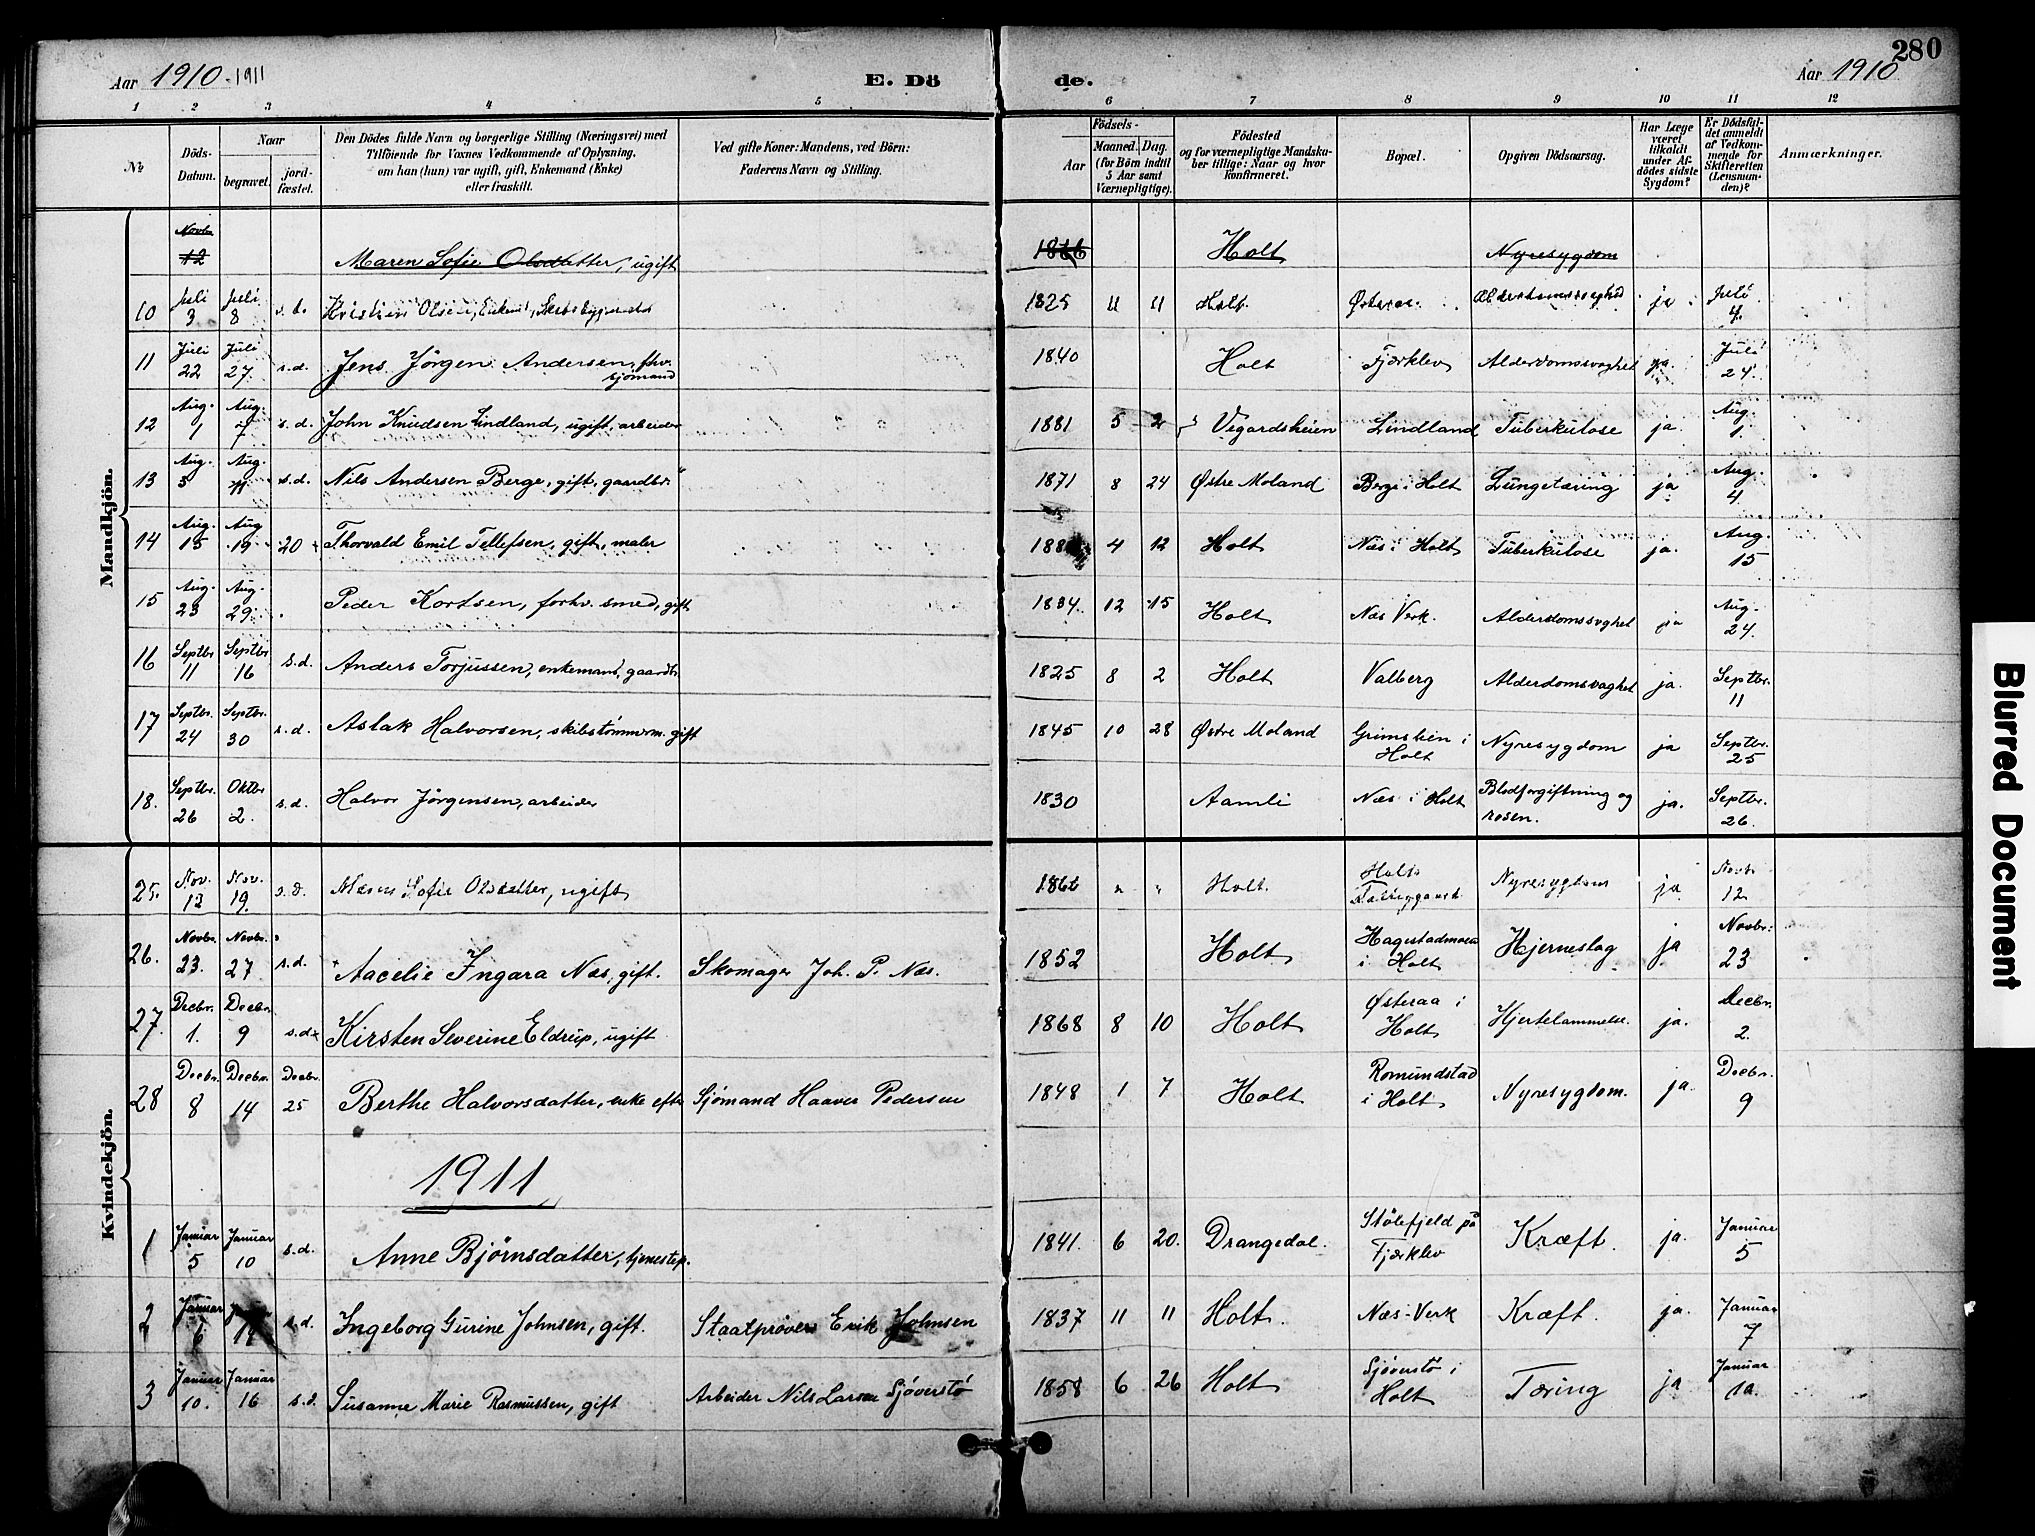 280
Aar 1910-1911 E. Dö de. Aar 1910
1 2 3 4 5 6 7 8 9 10 11 12
No Döds-Datum. Naar begravet. jord-fæstet. Den Dödes fulde Navn og borgerlige Stilling (Næringsvei) med Tilföiende for Voxnes Vedkommende af Oplysning, om han (hun) var ugift, gift, Enkemand (Enke) eller fraskilt. Ved gifte Koner: Mandens, ved Börn: Faderens Navn og Stilling. Födsels- Aar Maaned. Dag. (for Börn indtil 5 Aar samt Værnepligtige). Födested og for værnepligtige Mandskaber tillige: Naar og hvor konfirmeret. Bopæl. Opgiven Dödsaarsag. Har Læge været tilkaldt under Afdödes sidste Sygdom? Er Dödsfaldet anmeldt af Vedkommende for Skifteretten (Lensmanden)? Anmærkninger.
Mandkjön.
Novbr 12 Maren Sofie Olsdatter, ugift Holt Nyresygdom
10 Juli 3 Juli 8 s.d. Kristian Olsen, 1825 11 11 Holt. Østeraa Alderdomssvaghed ja Juli 4.
11 Juli 22 Juli 27. s.d. Jens Jørgen Andersen, fhv. sjømand 1840 Holt Fjærklev Alderdomssvaghet ja. Juli 24.
12 Aug. 1 Aug. 7 s.d. John Knudsen Lindland, ugift, arbeider 1881 5 2 Vegardsheien Lindland Tuberkulose ja Aug. 1.
13 Aug. 3 Aug. 11 s.d. Nils Andersen Berge, gift, gaardbr. 1871 8 24 Østre Moland Berge i Holt Lungetæring ja Aug. 4.
14 Aug. 15 Aug 19 20 Thorvald Emil Tellefsen, gift, maler 4 12 Holt Næs i Holt Tuberkulose ja. Aug. 15
15 Aug. 23 Aug. 29. Peder Kortsen, forhv. smed, gift 1834 12 15 Holt Næs Verk. Alderdomssvaghet ja Aug. 24.
16 Septbr 11 Septbr 16 s.d. Anders Torjussen, enkemand, gaardbr 1825 8 2 Holt Valberg Alderdomsvaghet ja. Septbr. 11
17 Septbr. 24 Septbr. 30 s.d. Aslak Halvorsen, skibstømmerm. gift 1845 10 28 Østre Moland Grimstien i Holt Nyresygdom ja Septbr. 25
18. Septbr. 26 Oktbr 2. s.d. Halvor Jørgensen, arbeider 1830 Aamli Næs i Holt Blodforgiftning og rosen. ja. Septbr. 26.
Kvindekjön.
25. Nov. 12 Nov. 19. s.d. Maren Sofie Olsdatter, ugift 1866 " " Holt. Holts Fattiggaard Nyresygdom ja Novbr 12
26. Novbr. 23. Novbr. 27 s.d. Aacelie Ingara Næs, gift. Skomager Joh. P. Næs. 1852 Holt Hagestadmoen i Holt Hjerneslag ja Novbr: 23
27. Decbr. 1. Decbr. 9 s.d. Kirsten Severine Eldrup, ugift 1868 8 10 Holt Østeraa i Holt Hjertelammelse. ja. Decbr. 2.
28 Decbr. 8 Decbr. 14 Decbr. 25 Berthe Halvorsdatter, enke efter Sjømand Haaver Pedersen 1848 1 7 Holt Romundstad i Holt Nyresygdom. ja. Decbr. 9
1911
1 Januar 5 Januar 10 s.d. Anne Bjørnsdatter, tjenestep. 1841. 6 20. Drangedal. Stølefjeld på Fjærklev Kræft. ja. Januar 5
2 Januar 6 s.d. Ingeborg Gurine Johnsen, gift. Staalprøver Erik Johnsen 1837 11 11 Holt. Næs-Verk Kræft. ja. Januar 7
3 Januar 10. Januar 16 s.d. Susanne Marie Rasmussen, gift Arbeider Nils Larsen Sjøverstø 1858 6 26 Holt Sjøverstø i Holt Tæring ja Januar 10.
Blurred Document